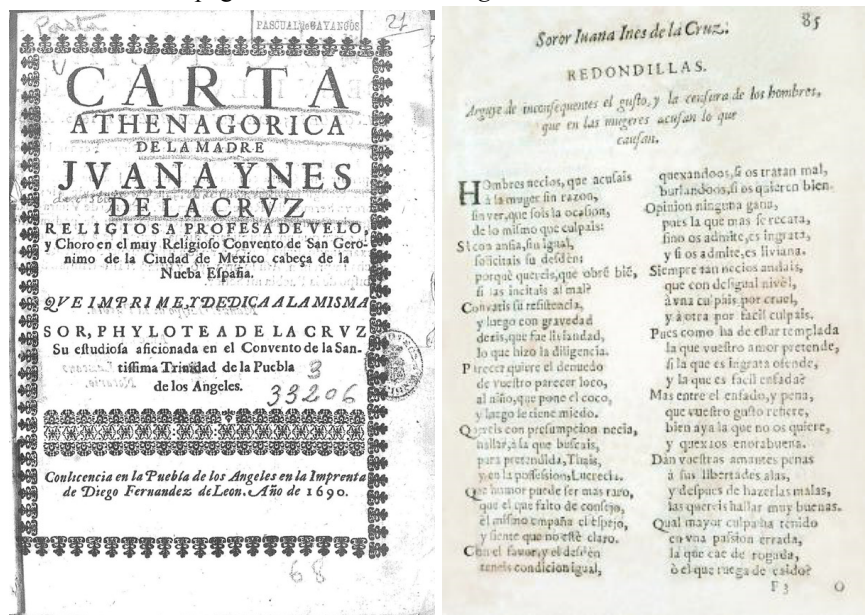 Pasta
PASCUAL de GAYANGOS
21
CARTA
ATHENAGORICA
DE LA MADRE
JVANA YNES
DE LA CRVZ
RELIGIOSA PROFESA DE VELO,
y Choro en el muy Religioſo Convento de San Gero-
nimo de la Ciudad de Mexico cabeça de la
Nueba Eſpaña.
QVE IMPRIME, Y DEDICA A LA MISMA
SOR, PHYLOTEA DE LA CRVZ
Su eſtudioſa aficionada en el Convento de la San-
tiſſima Trinidad de la Puebla
de los Angeles.
3
33206
Con licencia en la Puebla de los Angeles en la Imprenta
de Diego Fernandez de Leon. Año de 1690.
68
Soror Iuana Ines de la Cruz.
85
REDONDILLAS.
Arguye de inconſequentes el guſto, y la cenſura de los hombres,
que en las mugeres acuſan lo que
cauſan.
HOmbres necios, que acuſais
à la muger ſin razon,
ſin ver, que ſois la ocaſion,
de lo miſmo que culpais:
Si con anſia, ſin igual,
ſolicitais ſu deſdèn:
porquè quereis, que obrè biẽ,
ſi las incitais al mal?
Combatis ſu reſiſtencia,
y luego con gravedad
dezis, que fue liviandad,
lo que hizo la diligencia.
Parecer quiere el denuedo
de vueſtro parecer loco,
al niño, que pone el coco,
y luego le tiene miedo.
Quereis con preſumpcion necia,
hallar, à la que buſcais,
para pretendida, Thais,
y en la poſſeſsion, Lucrecia.
Que humor puede ſer mas raro,
que el que falto de conſejo,
èl miſmo empaña el eſpejo,
y ſiente que no eſtè claro.
Con el favor, y el deſdèn
teneis condicion igual,
quexandoos, ſi os tratan mal,
burlandoos, ſi os quieren bien.
Opinion ninguna gana,
pues la que mas ſe recata,
ſino os admite, es ingrata,
y ſi os admite, es liviana.
Siempre tan necios andais,
que con deſigual nivèl,
à vna culpais por cruel,
y à otra por facil culpais.
Pues como ha de eſtar templada
la que vueſtro amor pretende,
ſi la que es ingrata ofende,
y la que es facil enfada?
Mas entre el enfado, y pena,
que vueſtro guſto refiere,
bien aya la que no os quiere,
y quexaos enorabuena.
Dan vueſtras amantes penas
à ſus libertades alas,
y deſpues de hazerlas malas,
las quereis hallar muy buenas.
Qual mayor culpa ha tenido
en vna paſsion errada,
la que cae de rogada,
ò el que ruega de caido?
F 3
O